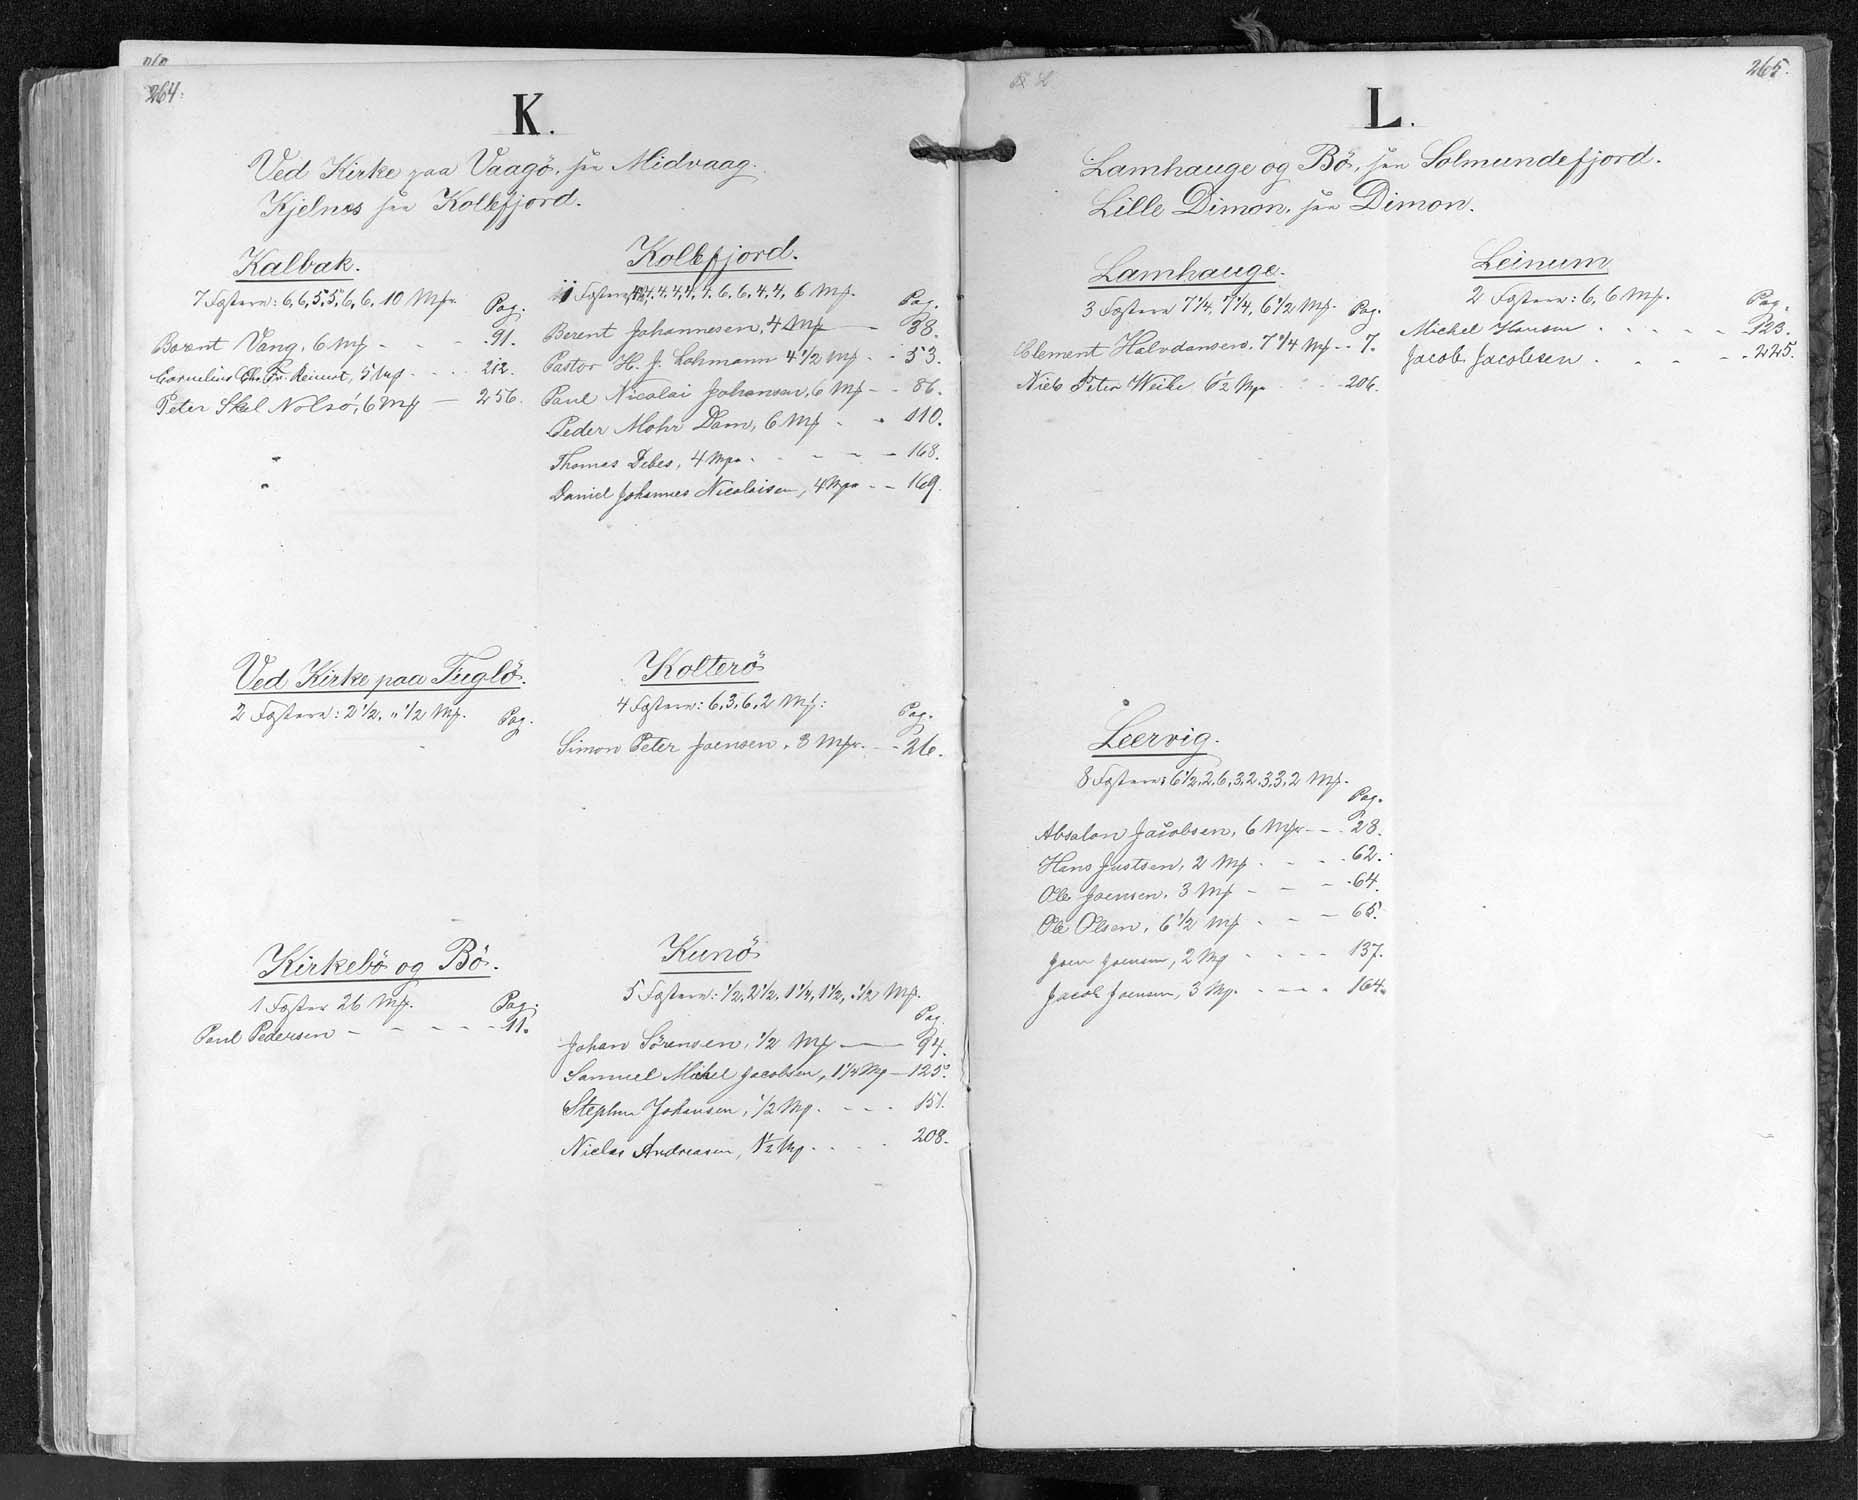 264.
K.
Ved Kirke paa Vaagö, see Midvaag.
Kjelnes see Kollefjord.
Kalbak.
7 Fæstere: 6, 6, 5, 5, 6, 6, 10 Mk. Pag.
Berent Vang, 6 Mk - - - 91.
Cornelius Chr. Fr. Reinert, 5 Mk - - - 212.
Peter Skeel Nolsö, 6 Mk — 256.
Kollefjord.
11 Fæstere, 4, 4, 4, 4, 6, 6, 4, 4, 6 Mk. Pag.
Berent Johannesen, 4 Mk — 38.
Pastor H. J. Lohmann 4 1/2 Mk - - 53.
Paul Nicolai Johansen, 6 Mk - - 86.
Peder Mohr Dam, 6 Mk - - 110.
Thomas Debes, 4 Mk - - - - 168.
Daniel Johannes Nicolaisen, 4 Mk - - 169.
Ved Kirke paa Fuglö.
2 Fæstere: 2 1/2, " 1/2 Mk. Pag.
Kolterö
4 Fæstere: 6, 3, 6, 2 Mk: Pag.
Simon Peter Joensen, 3 Mk. - - 26.
Kirkebö og Bö.
1 Fæster 26 Mk. Pag.
Paul Pedersen - - - - - 11.
Kunö
5 Fæstere: 1/2, 2 1/2, 1 1/4, 1 1/2, 1/2 Mk.
Pag.
Johan Sörensen, 1/2 Mk — 94.
Samuel Michel Jacobsen, 1 1/4 Mk — 125.
Stephen Johansen, 1/2 Mk. - - - 151.
Niclas Andreasen, 1 1/2 Mk - - - 208.
265.
L.
Lamhauge og Bö, see Solmundefjord.
Lille Dimon, see Dimon.
Lamhauge.
3 Fæstere 7 1/4, 7 1/4, 6 1/2 Mk. Pag.
Clement Halvdansen, 7 1/4 Mk - - 7.
Niels Peter Weihe 6 1/2 Mk - - - 206.
Leinum
2 Fæstere: 6, 6 Mk. Pag.
Michel Hansen - - - - - 123.
Jacob Jacobsen - - - - - 225.
Leervig.
8 Fæstere: 6 1/2, 2, 6, 3, 2, 3, 3, 2 Mk.
Pag.
Absalon Jacobsen, 6 Mk - - 28.
Hans Justsen, 2 Mk - - - 62.
Ole Joensen, 3 Mk - - - 64.
Ole Olsen, 6 1/2 Mk - - - 65.
Joen Joensen, 2 Mk - - - - 137.
Jacob Joensen, 3 Mk. - - - - 164.